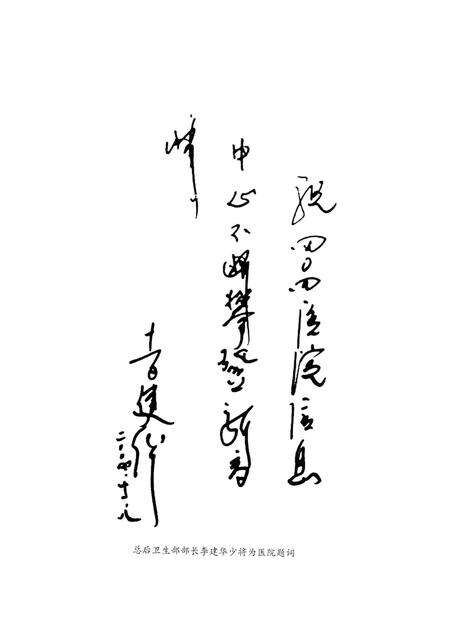 祝四〇四医院信息
中心不断攀登新高
峰
李建华
二〇〇四.十.八
总后卫生部部长李建华少将为医院题词